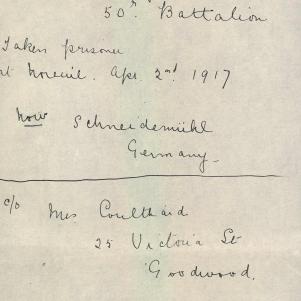 50th. Battalion
Taken prisoner
at Noreuil. Apr. 2nd. 1917
now Schneidemühl
Germany_
c/o Mrs Coulthard
25 Victoria St
Goodwood.